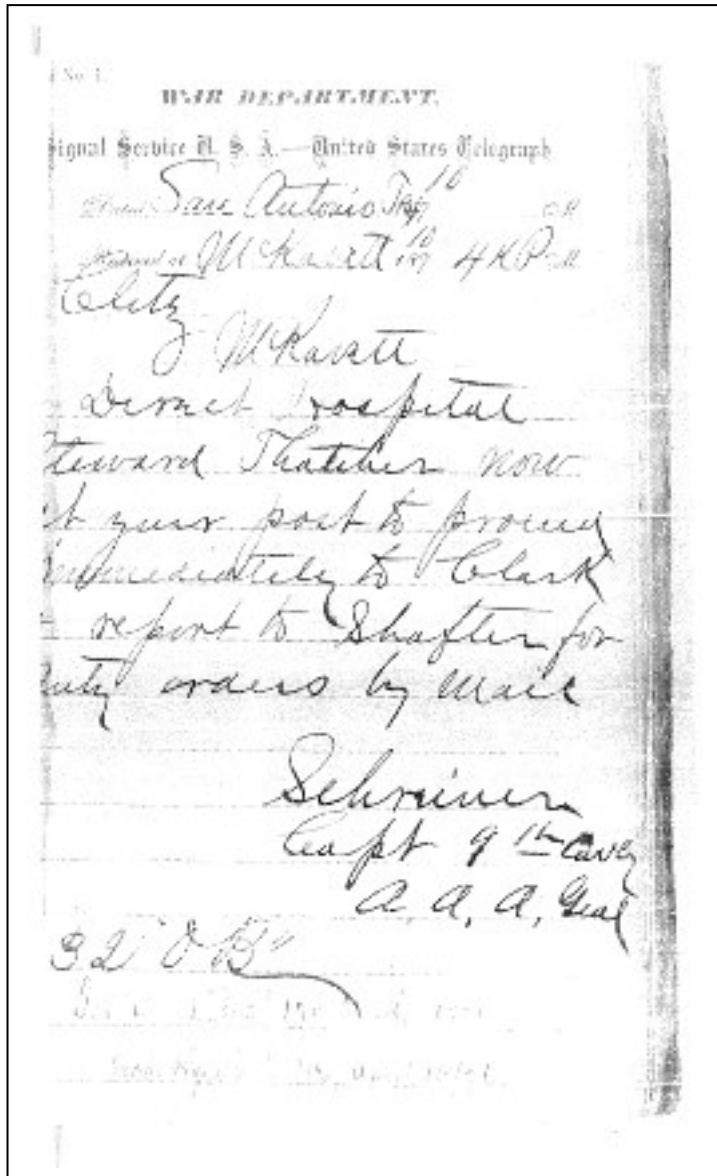 No. 1.
WAR DEPARTMENT.
Signal Service U. S. A.—United States Telegraph
San Antonio Tex 10
Received at McKavett 10 4 K P M
Clitz
McKavett
Direct Hospital
Steward Thatcher now
at your post to proceed
immediately to Clark
& report to Shafter for
duty orders by mail
Schreiner
Capt 9th Cavy
A. A. A. Genl
32 O B"